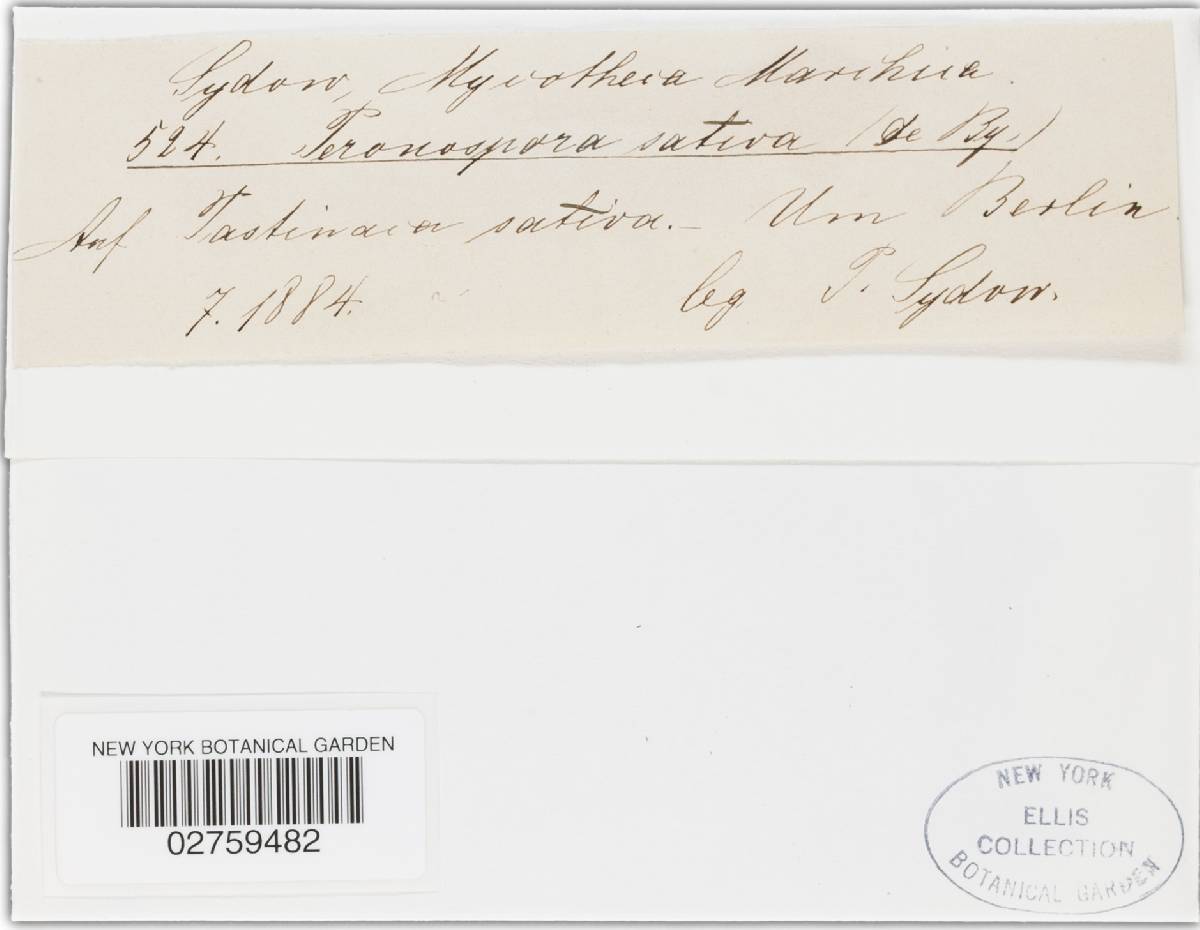 Sydow, Mycotheca Marchica.
524. Peronospora sativa (de By.)
Auf Pastinaca sativa. – Um Berlin.
7. 1884. leg P. Sydow.
NEW YORK BOTANICAL GARDEN
02759482
NEW YORK
ELLIS
COLLECTION
BOTANICAL GARDEN